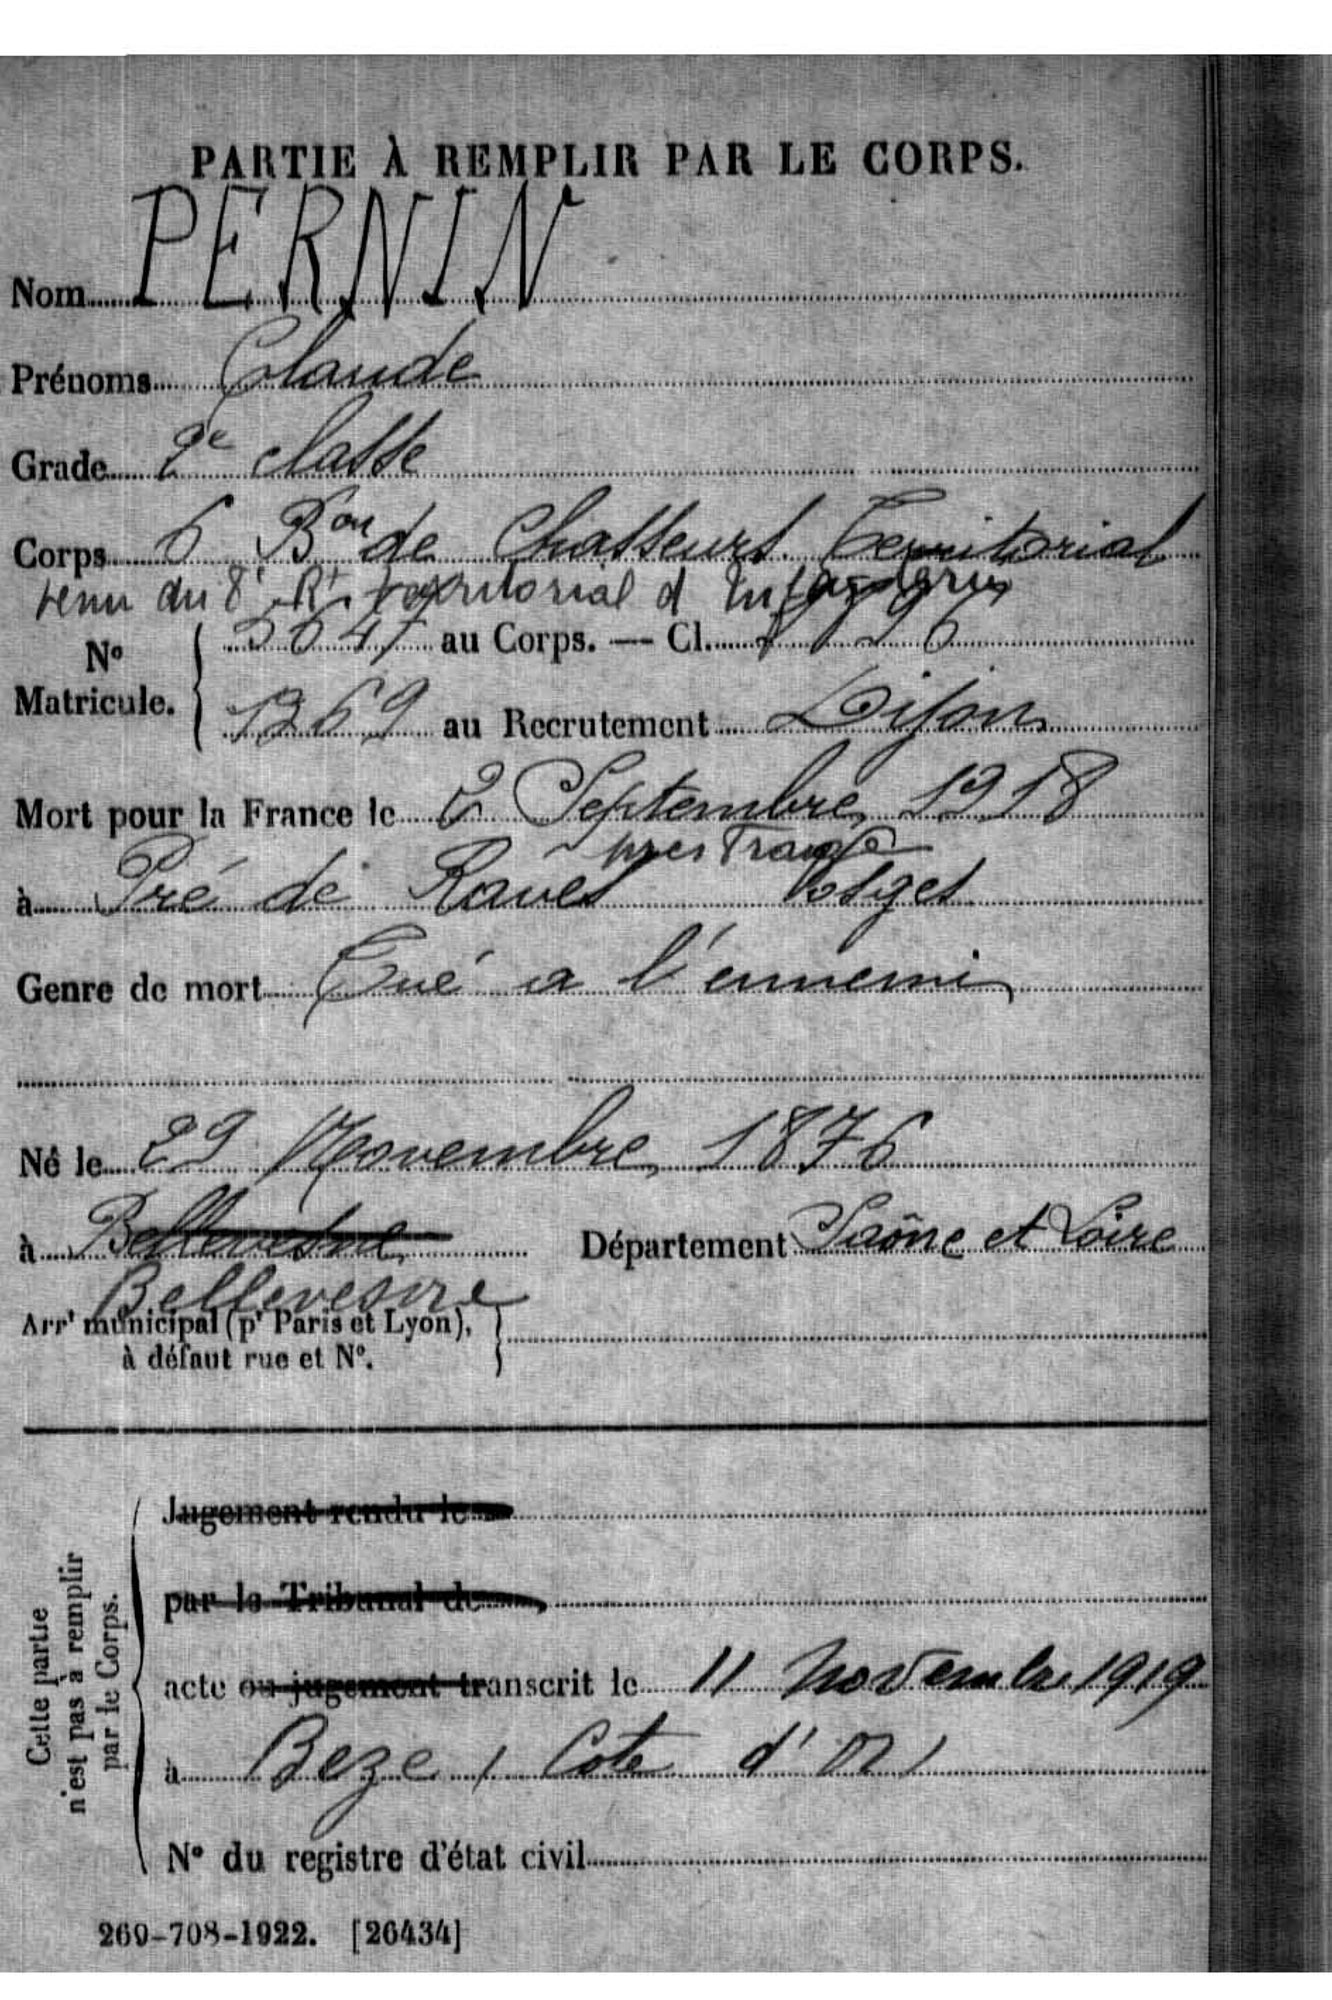 PARTIE À REMPLIR PAR LE CORPS.
Nom PERNIN
Prénoms Claude
Grade 2e classe
Corps 6 Bon de Chasseurs Territorial
venu du 8e Rt territorial d'Infanterie
No Matricule. 5647 au Corps. — Cl. 1896
1269 au Recrutement Dijon
Mort pour la France le 2 Septembre 1918
près
à Pré de Raves Vosges
Genre de mort Tué a l'ennemi
Né le 29 Novembre 1876
à Bellevesvre Département Saône et Loire
Bellevesvre
Arrt municipal (pr Paris et Lyon),
à défaut rue et No.
Cette partie
n'est pas à remplir
par le Corps.
Jugement rendu le
par le Tribunal de
acte ou jugement transcrit le 11 Novembre 1919
à Beze (Cote d'Or)
No du registre d'état civil
269-708-1922. [26434]